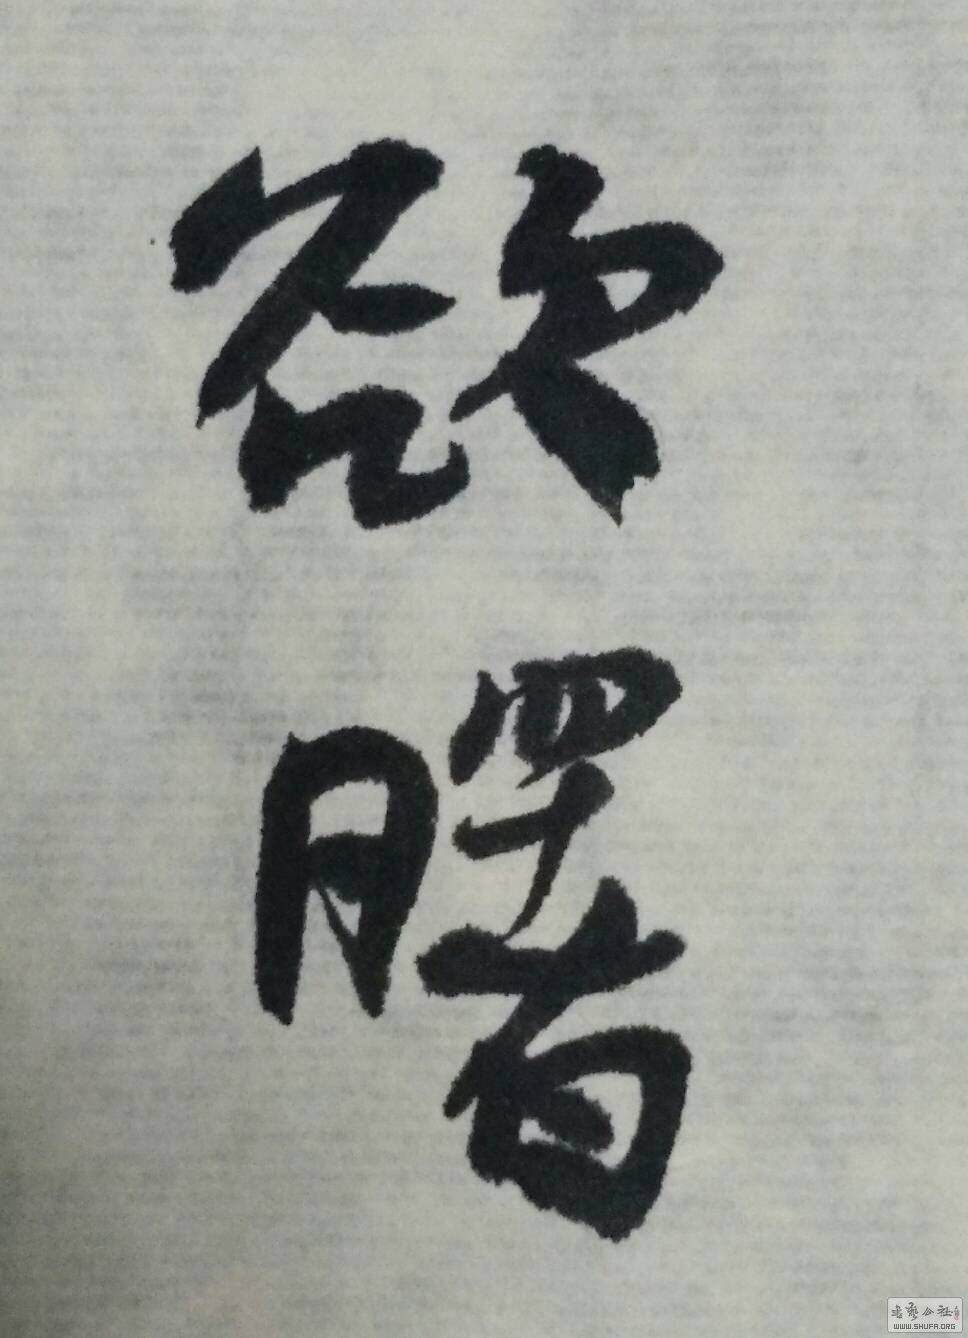 欲
曙
书艺公社
WWW.SHUFA.ORG